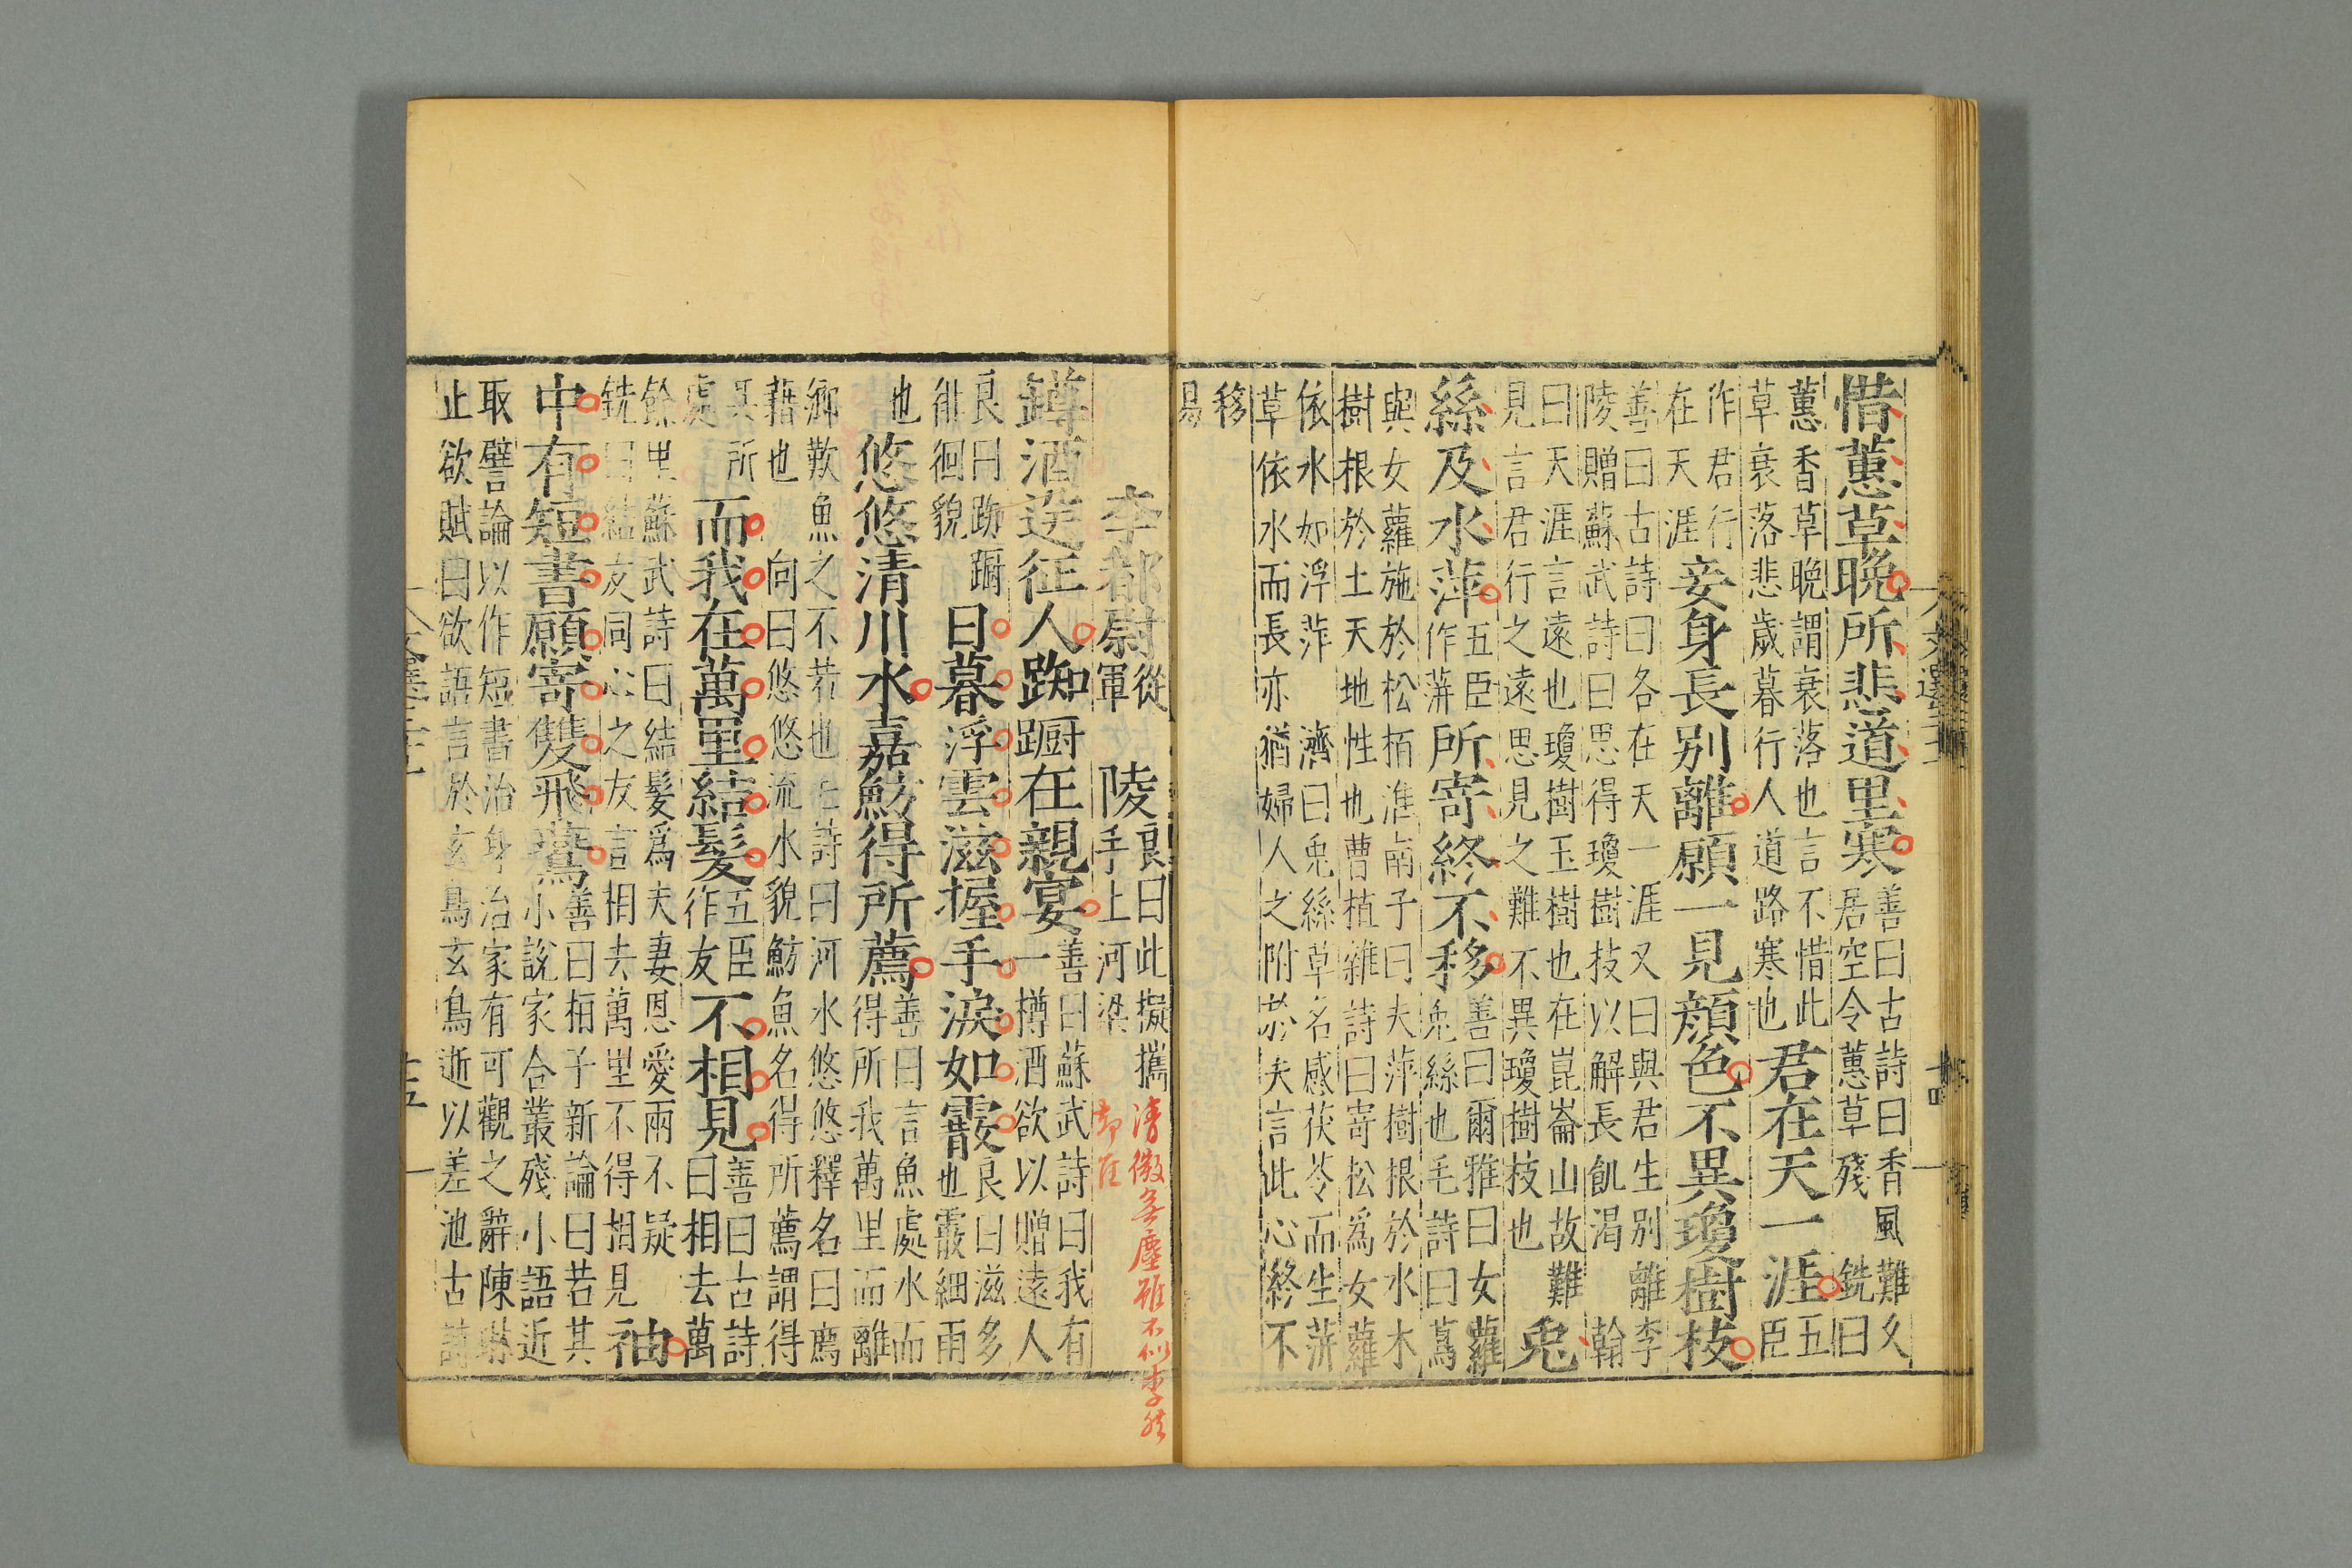 惜蕙草晚所悲道里寒善曰古詩曰香風難久居空令蕙草殘 銑曰
蕙香草晚謂衰落也言不惜此草衰落悲歲暮行人道路寒也君在天一涯五臣
作君行在天涯妾身長別離願一見顏色不異瓊樹枝
善曰古詩曰各在天一涯又曰與君生別離李陵贈蘇武詩曰思得瓊樹枝以解長飢渴 翰
曰天涯言遠也瓊樹玉樹也在崑崙山故難見言君行之遠思見之難不異瓊樹枝也兔
絲及水萍五臣作蓱所寄終不移善曰爾雅曰女蘿兔絲也毛詩曰蔦
與女蘿施於松栢淮南子曰夫萍樹根於水木樹根於土天地性也曹植雜詩曰寄松為女蘿
依水如浮萍 濟曰兔絲草名感茯苓而生蓱草依水而長亦猶婦人之附於夫言此心終不
移易
李都尉從軍 陵良曰此擬攜手上河梁
清微無塵雖不似李然
鐏酒送征人踟蹰在親宴善曰蘇武詩曰我有一樽酒欲以贈遠人
良曰踟蹰徘徊貌日暮浮雲滋握手淚如霰良曰滋多也霰細雨
也悠悠清川水嘉魴得所薦善曰言魚處水而得所我萬里而離
鄉歎魚之不若也毛詩曰河水悠悠釋名曰薦藉也 向曰悠悠流水貌魴魚名得所薦謂得
其所處而我在萬里結髮五臣作友不相見善曰古詩曰相去萬
餘里蘇武詩曰結髮為夫妻恩愛兩不疑銑曰結友同心之友言相去萬里不得相見袖
中有短書願寄雙飛鷰善曰桓子新論曰若其小說家合叢殘小語近
取譬論以作短書治身治家有可觀之辭陳琳止欲賦曰欲語言於玄鳥玄鳥逝以差池古詩